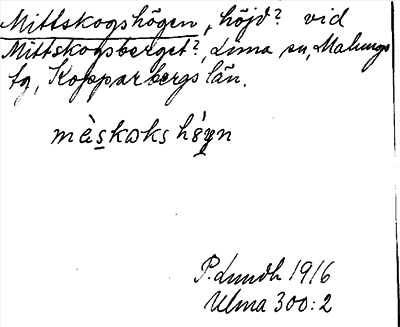 Mittskogshögen, höjd? vid
Mittskogsberget?, Lima sn, Malungs
tg, Kopparbergs län.
mὰskoks hö́yn
P. Lundh 1916
Ulma 300:2